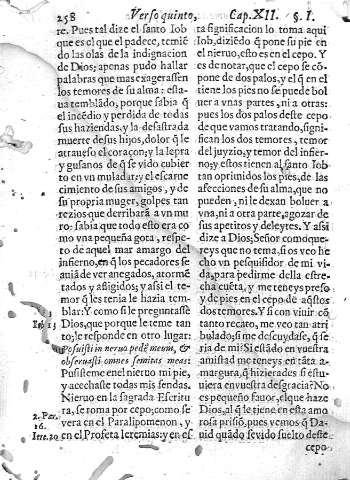 258 Verso quinto, Cap. XII. § I.
re. Pues tal dize el santo Iob
que es el que el padece, temiẽ
do las olas de la indignacion
de Dios; apenas pudo hallar
palabras que mas exagerassen
los temores de su alma: esta-
ua temblãdo, porque sabia q̃
el incẽdio y perdida de todas
sus haziendas, y la desastrada
muerte de sus hijos, dolor q̃ le
atraueso el coraçon; y la lepra
y gusanos de q̃ se vido cubier
to en vn muladar; y el escarne
cimiento de sus amigos, y de
su propria muger, golpes tan
rezios que derribarã a vn mu
ro: sabia que todo esto era co
mo vna pequeña gota, respe-
to de aquel mar amargo del
infierno, en q̃ los pecadores se
auiã de ver anegados, atormẽ
tados y afligidos; y assi el te-
mor q̃ les tenia le hazia tem-
blar: Y como si le preguntasse
Dios, que porque le teme tan
to; le responde en otro lugar:
Posuisti in neruo pedẽ meum, &
obseruasti omnes semitas meas:
Pusisteme en el neruio mi pie,
y acechaste todas mis sendas.
Neruo en la sagrada Escritu
ra, se toma por cepo; como se
vera en el Paralipomenon, y
en el Profeta Ieremias: y en es
Iob 13
2. Par.
16.
Iere. 20
ta significacion lo toma aqui
Iob, diziẽdo q̃ pone su pie en
el neruio, esto es en el cepo. Y
es de notar, que el cepo se cõ
pone de dos palos, y el q̃ en el
tiene los pies no se puede bol
uer a vnas partes, ni a otras:
pues los dos palos deste cepo
de que vamos tratando, signi-
fican los dos temores, temor
del juyzio, y temor del infier-
no; y estos tienen al santo Iob
tan oprimidos los pies, de las
afecciones de su alma, que no
pueden, ni le dexan boluer a
vna, ni a otra parte, a gozar de
sus apetitos y deleytes. Y assi
dize a Dios; Señor como que-
reys que no tema, si os veo he
cho vn pesquisidor de mi vi-
da, para pedirme della estre-
cha cuẽta, y me teneys preso
y de pies en el cepo de aq̃stos
dos temores. Y si con viuir cõ
tanto recato, me veo tan atri
bulado; si me descuydase, q̃ se
ria de mi? Si estãdo en vuestra
amistad me teneys en tãta a-
margura, q̃ hizierades si estu-
uiera en vuestra desgracia? No
es pequeño fauor, el que haze
Dios, al q̃ le tiene en esta amo
rosa prisiõ, pues vemos q̃ Da-
uid quãdo se vido suelto deste
cepo